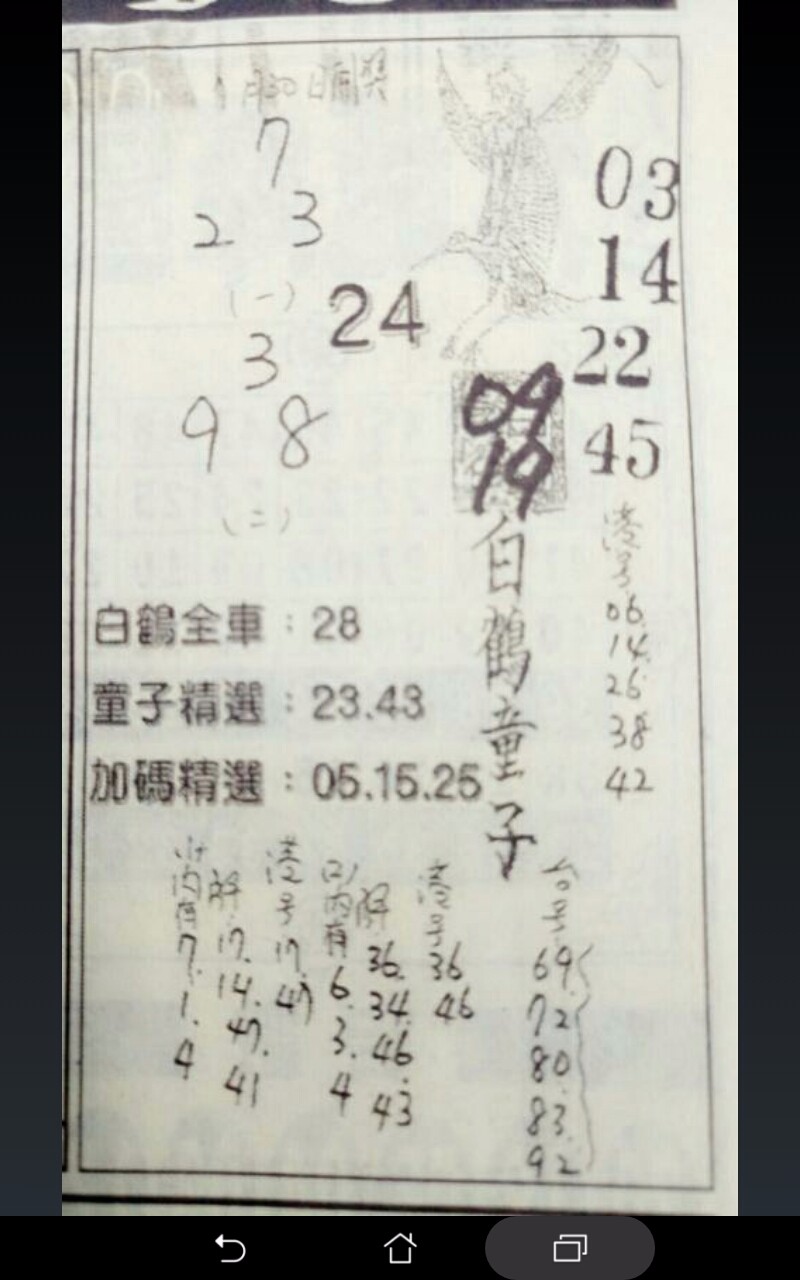 月30日開獎
7
2 3
(一)
3
9 8
(二)
24
03
14
22
45
09
19
白鶴童子
港号
06.
14.
26
38
42
白鶴全車：28
童子精選：23.43
加碼精選：05.15.25
內有
7.
1.
4
解
17.
14.
47.
41
港号
17.
47
(2)內有
6.
3.
4
解
36.
34.
46.
43
港号
36
46
台号
69.
72
80
83.
92